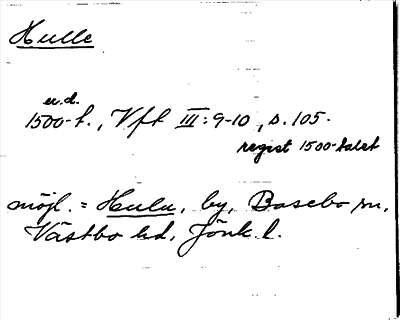 Hulle
u.d.
1500-t., Vft III: 9-10, s. 105.
regist 1500-talet
möjl. = Hulu, by, Bosebo sn,
Västbo hd, Jönk. l.